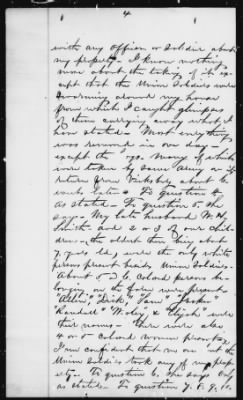 4
with any officer or Soldier about
my property - I know nothing
more about the taking of it ex-
cept that the Union Soldiers were
swarming around my house
from which I caught glimpses
of them carrying away what I
have stated - Most everything
was removed in one day -
except the hogs. Many of which
were taken by same Army on its
return from Vicksburg about
weeks later - To question 4
as stated - To question 5 she
says - My late husband W. H.
Smith and 2 or 3 of our chil-
dren - the oldest then being about
7 years old were the only white
persons present beside Union Soldiers -
About 5 or 6 colored persons be-
longing on the farm were present
"Dick" "Sam"
"Randall" "Wesley" & "Elijah" were
their names - There were also
4 or 5 colored women present,
I am confident that no one but the
Union Soldiers took any of my prope-
rty - To question 6 she says Only
as stated - To question 7. 8. 9. 10.